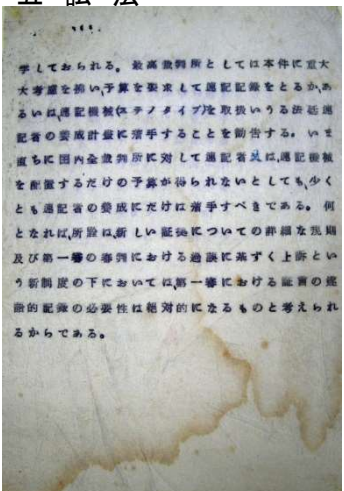 学しておられる。最高裁判所としては本件に重大
大考慮を拂い、予算を要求して速記記録をとるか、あ
るいは、速記機械(ステノタイプ)を取扱いうる法廷速
記者の養成計畫に著手することを勧告する。いま
直ちに国内全裁判所に対して速記者又は速記機械
を配置するだけの予算が得られないとしても、少く
とも速記者の養成にだけは著手すべきである。何
となれば、所設は、新しい証拠についての詳細な規則
及び第一審の審判における過誤に基ずく上訴とい
う新制度の下においては、第一審における証言の逐
語的記録の必要性は絶対的になるものと考えられ
るからである。